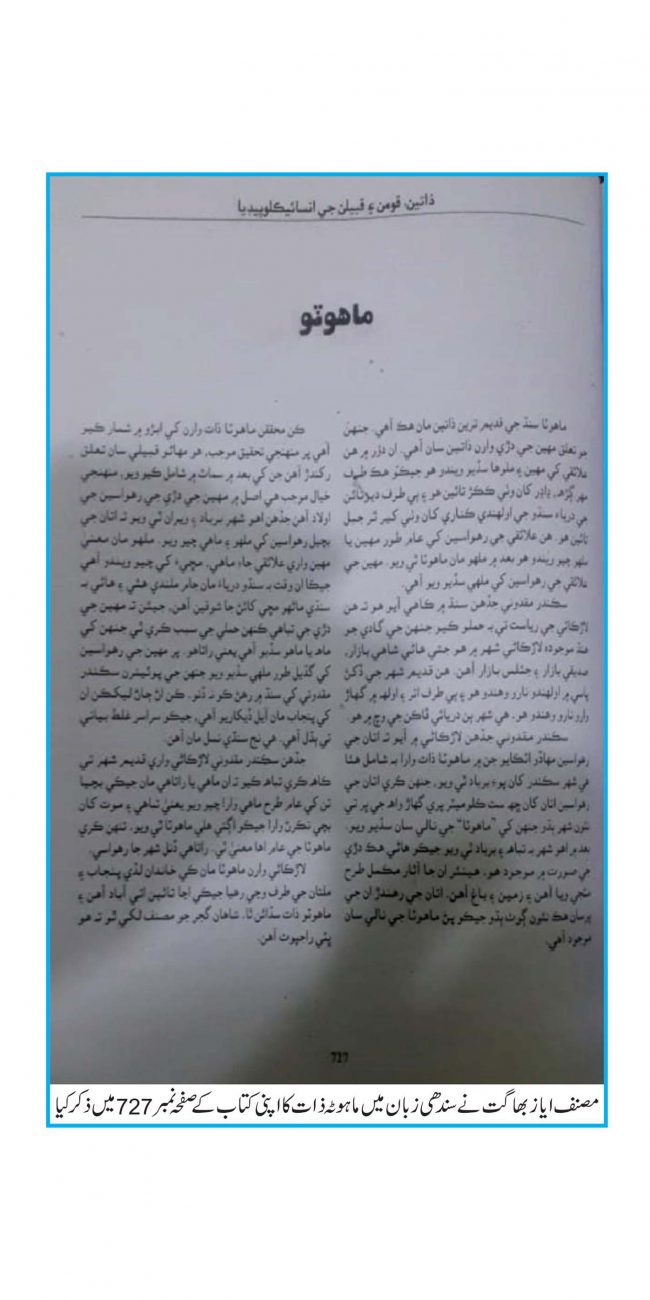 ذاتين، قومن ۽ قبيلن جي انسائيڪلوپيڊيا
ماهوٽو
ماهوٽا سنڌ جي قديم ترين ذاتين مان هڪ آهي. جنهن
جو تعلق مهين جي دڙي وارن ذاتين سان آهي. ان دؤر ۾ هن
علائقي کي مهين ۽ ملوها سڏيو ويندو هو جيڪو هڪ طرف
مهر ڳڙهه، ڍاڍر کان وٺي ڪڪڙ تائين هو ۽ ٻي طرف
جي درياء سنڌو جي اولهندي ڪناري کان وٺي کير ٿر جبل
تائين هو. هن علائقي جي رهواسين کي عام طور مهين يا
ملهر چيو ويندو هو بعد ۾ ملهو مان ماهوٽا ٿي ويو. مهين جي
علائقي جي رهواسين کي ملهي سڏيو ويو آهي.
سڪندر مقدوني جڏهن سنڌ ۾ ڪاهي آيو هو ته هن
لاڙڪاڻي جي رياست تي به حملو ڪيو جنهن جي گادي جو
هنڌ موجوده لاڙڪاڻي شهر ۾ هو جتي هاڻي شاهي بازار،
صديقي بازار ۽ جئلس بازار آهن. هن قديم شهر جي ڏکڻ
پاسي ۾ اولهندو نارو وهندو هو ۽ ٻي طرف اتر ۽ اولهه ۾ گهاڙ
وارو نارو وهندو هو. هي شهر ٻن دريائي ڦاڪن جي وچ ۾ هو.
سڪندر مقدوني جڏهن لاڙڪاڻي ۾ آيو ته اتان جي
رهواسين مهاڏو اٽڪايو جن ۾ ماهوٽا ذات وارا به شامل هئا
هي شهر سڪندر کان پوءِ برباد ٿي ويو، جنهن ڪري اتان جي
رهواسين اتان کان ڇهه ست ڪلوميٽر پري گهاڙ واهه جي ڀر تي
نئون شهر ٻڌو جنهن کي "ماهوٽا" جي نالي سان سڏيو ويو.
بعد ۾ اهو شهر به تباهه ۽ برباد ٿي ويو جيڪو هاڻي هڪ دڙي
جي صورت ۾ موجود هو. هينئر ان جا آثار مڪمل طرح
مٽجي ويا آهن ۽ زمين ۽ باغ آهن. اتان جي رهندڙ ان جي
ڀرسان هڪ نئون ڳوٺ ٻڌو جيڪو پڻ ماهوٽا جي نالي سان
موجود آهي.
ڪن محققن ماهوٽا ذات وارن کي ابڙو ۾ شمار ڪيو
آهي پر منهنجي تحقيق موجب، هو مهاڻو قبيلي سان تعلق
رکندڙ آهن جن کي بعد ۾ سماٽ ۾ شامل ڪيو ويو. منهنجي
خيال موجب هي اصل ۾ مهين جي دڙي جي رهواسين جي
اولاد آهن جڏهن اهو شهر برباد ۽ ويران ٿي ويو ته اتان جي
بچيل رهواسين کي ملهو ۽ ماهي چيو ويو. ملهو مان معنيٰ
مهين واري علائقي جاء ماهي، مڇيءَ کي چيو ويندو آهي
جيڪا ان وقت به سنڌو درياء مان جام ملندي هئي ۽ هاڻي به
سنڌي ماڻهو مڇي کائڻ جا شوقين آهن، جيئن ته مهين جي
دڙي جي تباهي ڪنهن حملي جي سبب ڪري ٿي جنهن کي
ماهه يا ماهو سڏبو آهي يعني راتاهو. پر مهين جي رهواسين
کي گڏيل طور ملهي سڏيو ويو جنهن جي پوئينرن سڪندر
مقدوني کي سنڌ ۾ رهڻ ڪو نه ڏنو. ڪن اڻ ڄاڻ ليکڪن ان
کي پنجاب مان آيل ڏيکاريو آهي، جيڪو سراسر غلط بياني
تي ٻڌل آهي. هي نج سنڌي نسل مان آهن.
جڏهن سڪندر مقدوني لاڙڪاڻي واري قديم شهر تي
ڪاهه ڪري تباهه ڪيو ته ان ماهي يا راتاهي مان جيڪي بچيا
تن کي عام طرح ماهي وارا چيو ويو يعنيٰ تباهي ۽ موت کان
بچي نڪرڻ وارا جيڪو اڳتي هلي ماهوٽا ٿي ويو. تنهن ڪري
ماهوٽا جي عام اها معنيٰ ٿي. راتاهي ڏنل شهر جا رهواسي.
لاڙڪاڻي وارن ماهوٽا مان کي خاندان لڏي پنجاب ۽
ملتان جي طرف وڃي رهيا جيڪي اڃا تائين اتي آباد آهن ۽
ماهوٽو ذات سڏائن ٿا. شاهان گجر جو مصنف لکي ٿو ته هو
ڀٽي راجپوت آهن.
727
مصنف ایاز بھاگت نے سندھی زبان میں ماہوٹہ ذات کا اپنی کتاب کے صفحہ نمبر 727 میں ذکر کیا